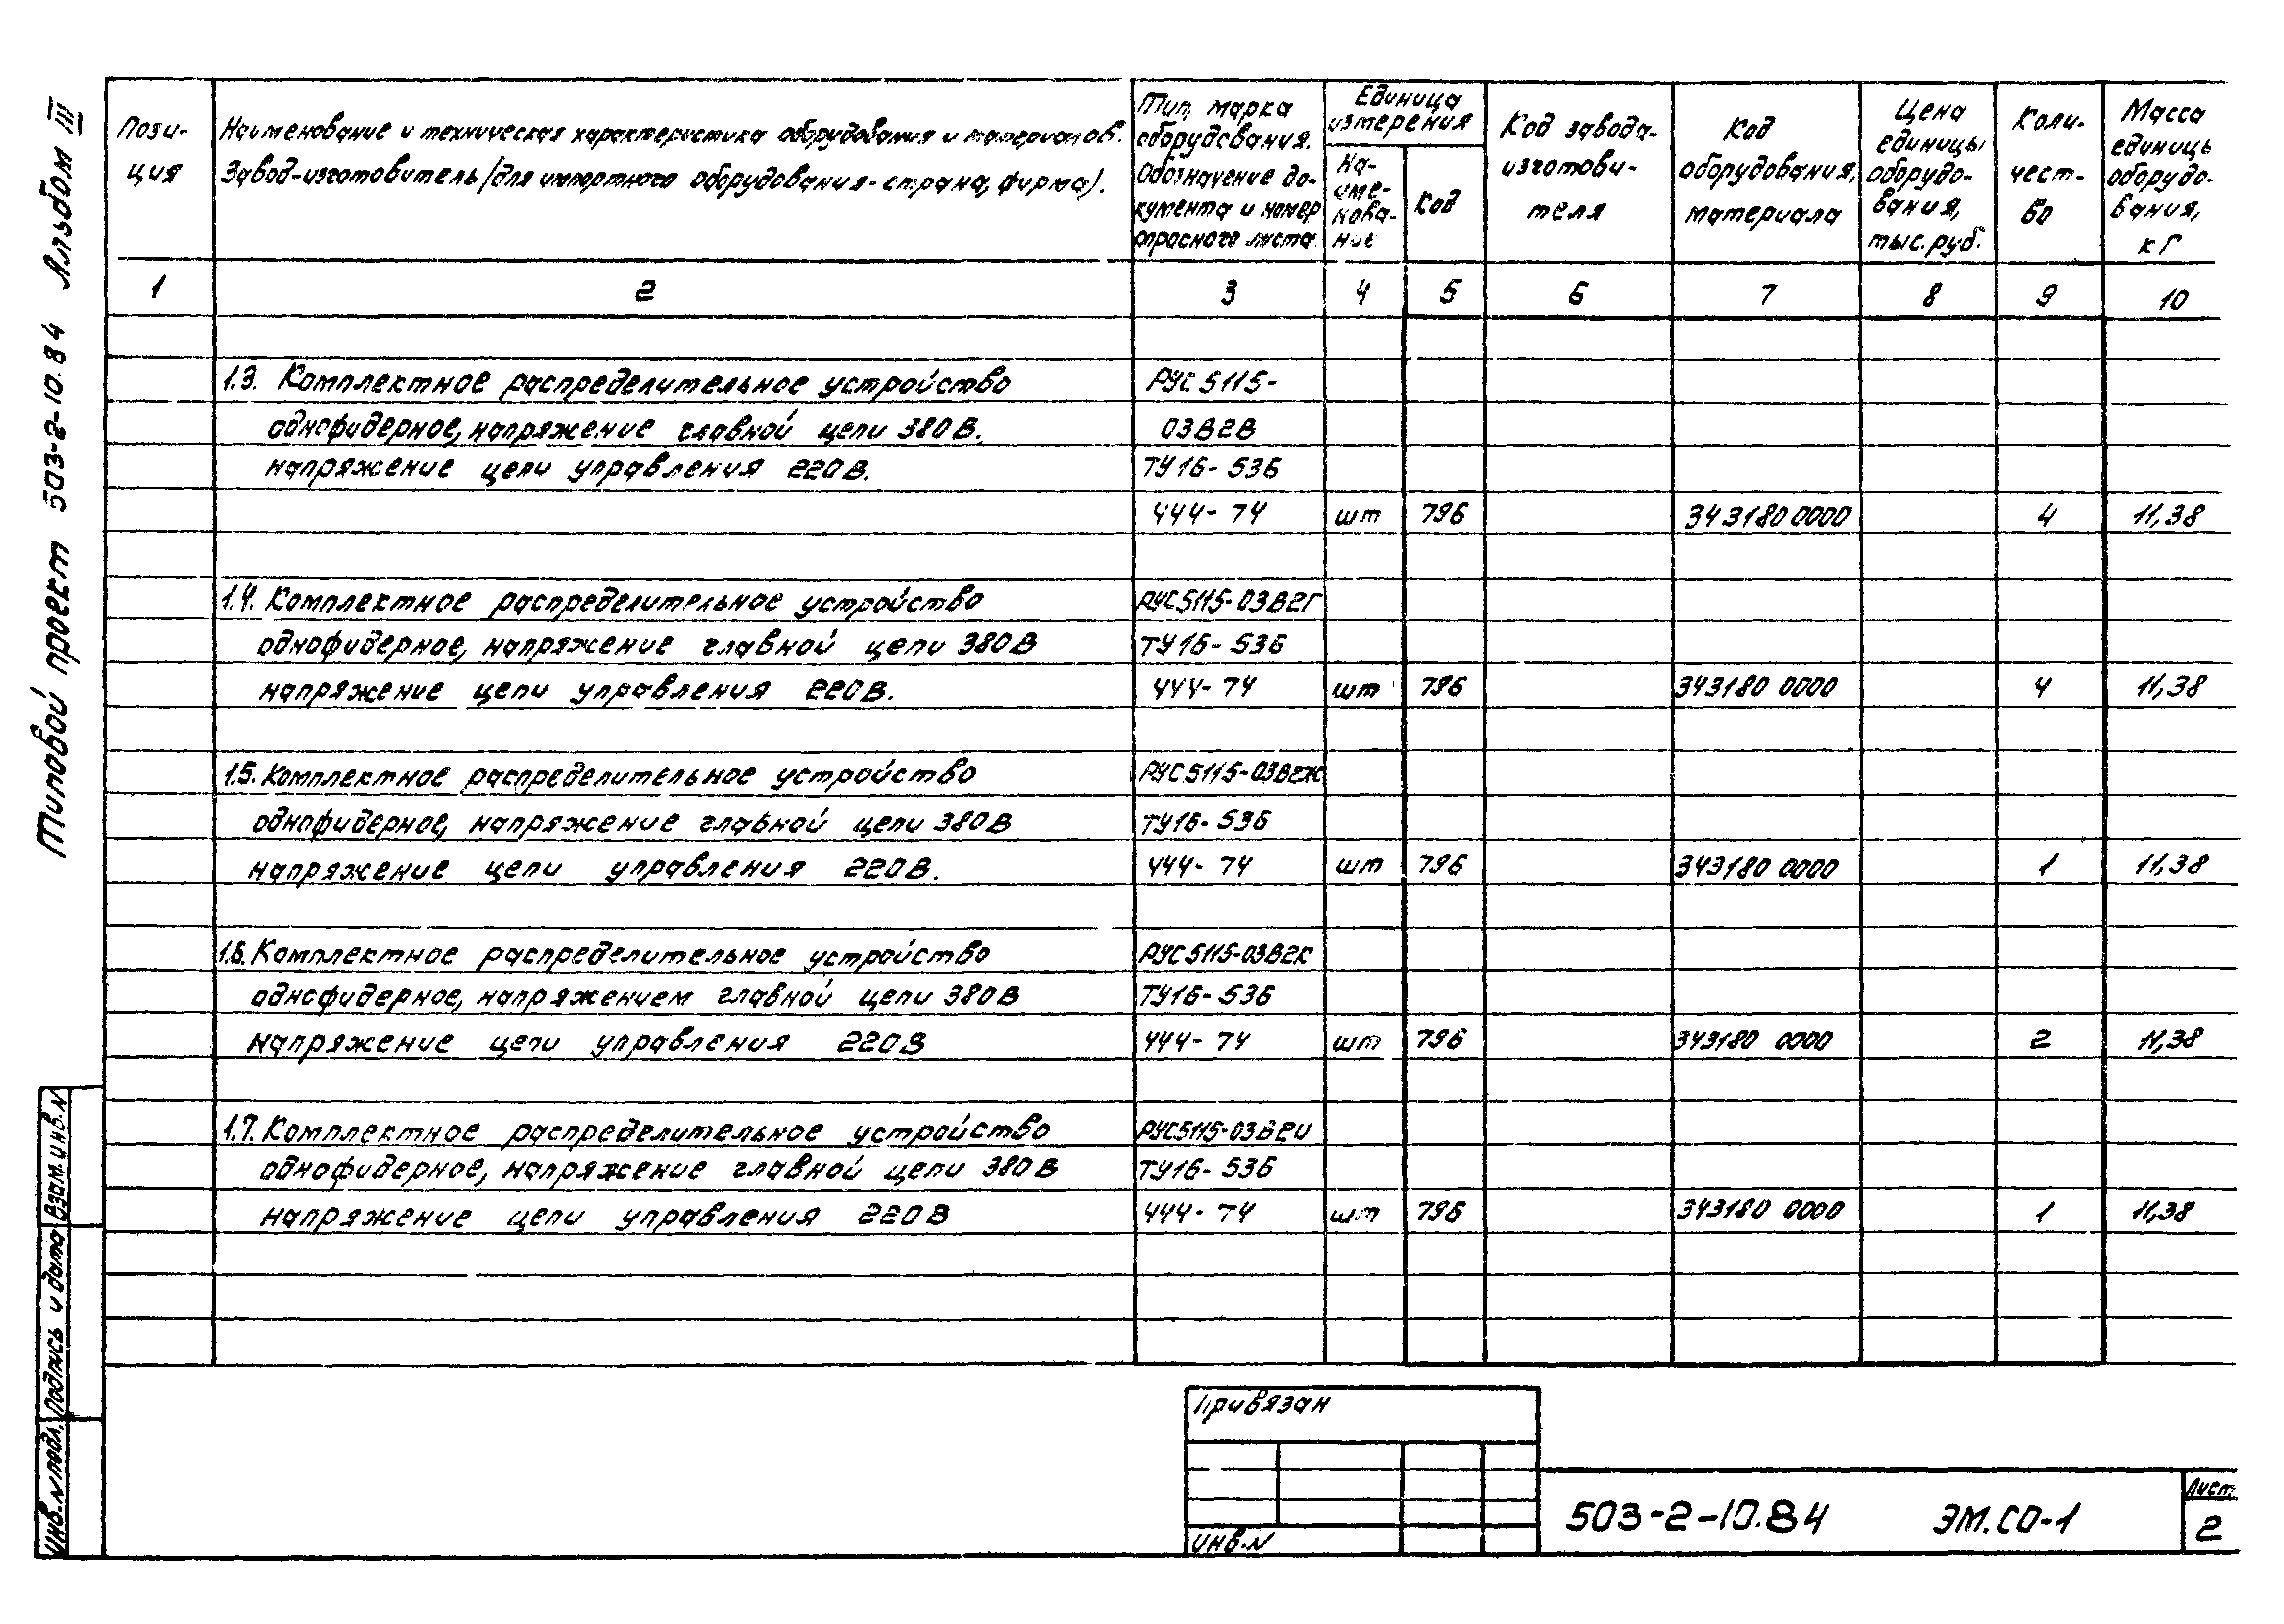 Типовой проект 503-2-10.84 Альбом III
Пози-
ция
Наименование и техническая характеристика оборудования и материалов.
Завод-изготовитель (для импортного оборудования - страна, фирма).
Тип, марка
оборудования.
Обозначение до-
кумента и номер
опросного листа
Единица
измерения
На-
име-
нова-
ние
Код
Код завода-
изготови-
теля
Код
оборудования,
материала
Цена
единицы
оборудо-
вания,
тыс. руб.
Коли-
чест-
во
Масса
единицы
оборудо-
вания,
кг
1 2 3 4 5 6 7 8 9 10
1.3. Комплектное распределительное устройство РУС 5115-
однофидерное, напряжение главной цепи 380 В. 03В2В
напряжение цепи управления 220 В. ТУ16-536
444-74 шт 796 343180 0000 4 11,38
1.4. Комплектное распределительное устройство РУС5115-03В2Г
однофидерное, напряжение главной цепи 380 В ТУ16-536
напряжение цепи управления 220 В. 444-74 шт 796 343180 0000 4 11,38
1.5. Комплектное распределительное устройство РУС5115-03В2Ж
однофидерное, напряжение главной цепи 380 В ТУ16-536
напряжение цепи управления 220 В. 444-74 шт 796 343180 0000 1 11,38
1.6. Комплектное распределительное устройство РУС5115-03В2К
однофидерное, напряжением главной цепи 380 В ТУ16-536
напряжение цепи управления 220 В 444-74 шт 796 343180 0000 2 11,38
1.7. Комплектное распределительное устройство РУС5115-03В2И
однофидерное, напряжение главной цепи 380 В ТУ16-536
напряжение цепи управления 220 В 444-74 шт 796 343180 0000 1 11,38
Взам. инв. N
Подпись и дата
Инв. N подл.
Привязан
Инв. N
503-2-10.84 ЭМ.СО-1
Лист
2